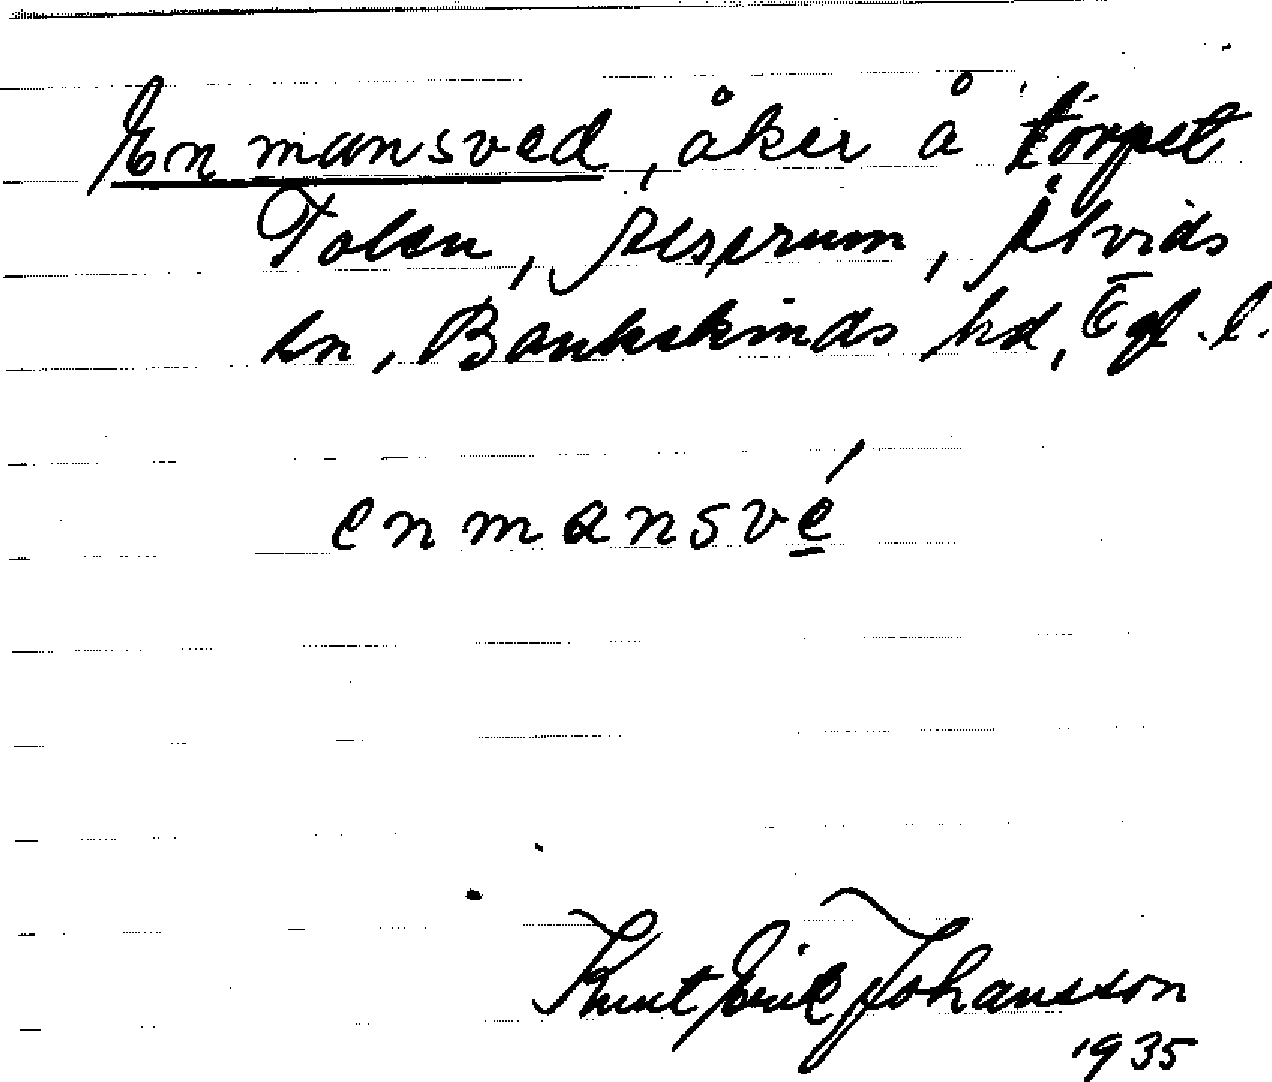 Enmansved, åker å torpet
Tolen, Perserum, Åtvids
sn, Bankekinds hd, Ögl. l.
enmansvé
Knut Erik Johansson
1935